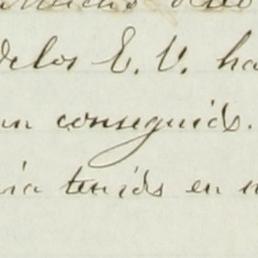 delos E. V. ha
un conseguido.
ia tenido en